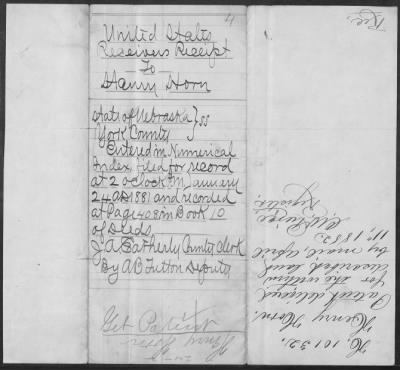 4
United States
Receivers Receipt
To
Henry Horn
State of Nebraska } ss
York County
Entered in Numerical
Index, filed for record
at 2 oclock P.M. January
24 AD 1881 and recorded
at Page 408 in Book 10
of Deeds.
J.A. Eatherly County Clerk
By A.C. Fulton Deputy
Get Patent
Henry Horn
Rec.
No. 10132.
Henry Horn.
Patent delivered
for the within
described land
by mail, April
11, 1882.
Register.